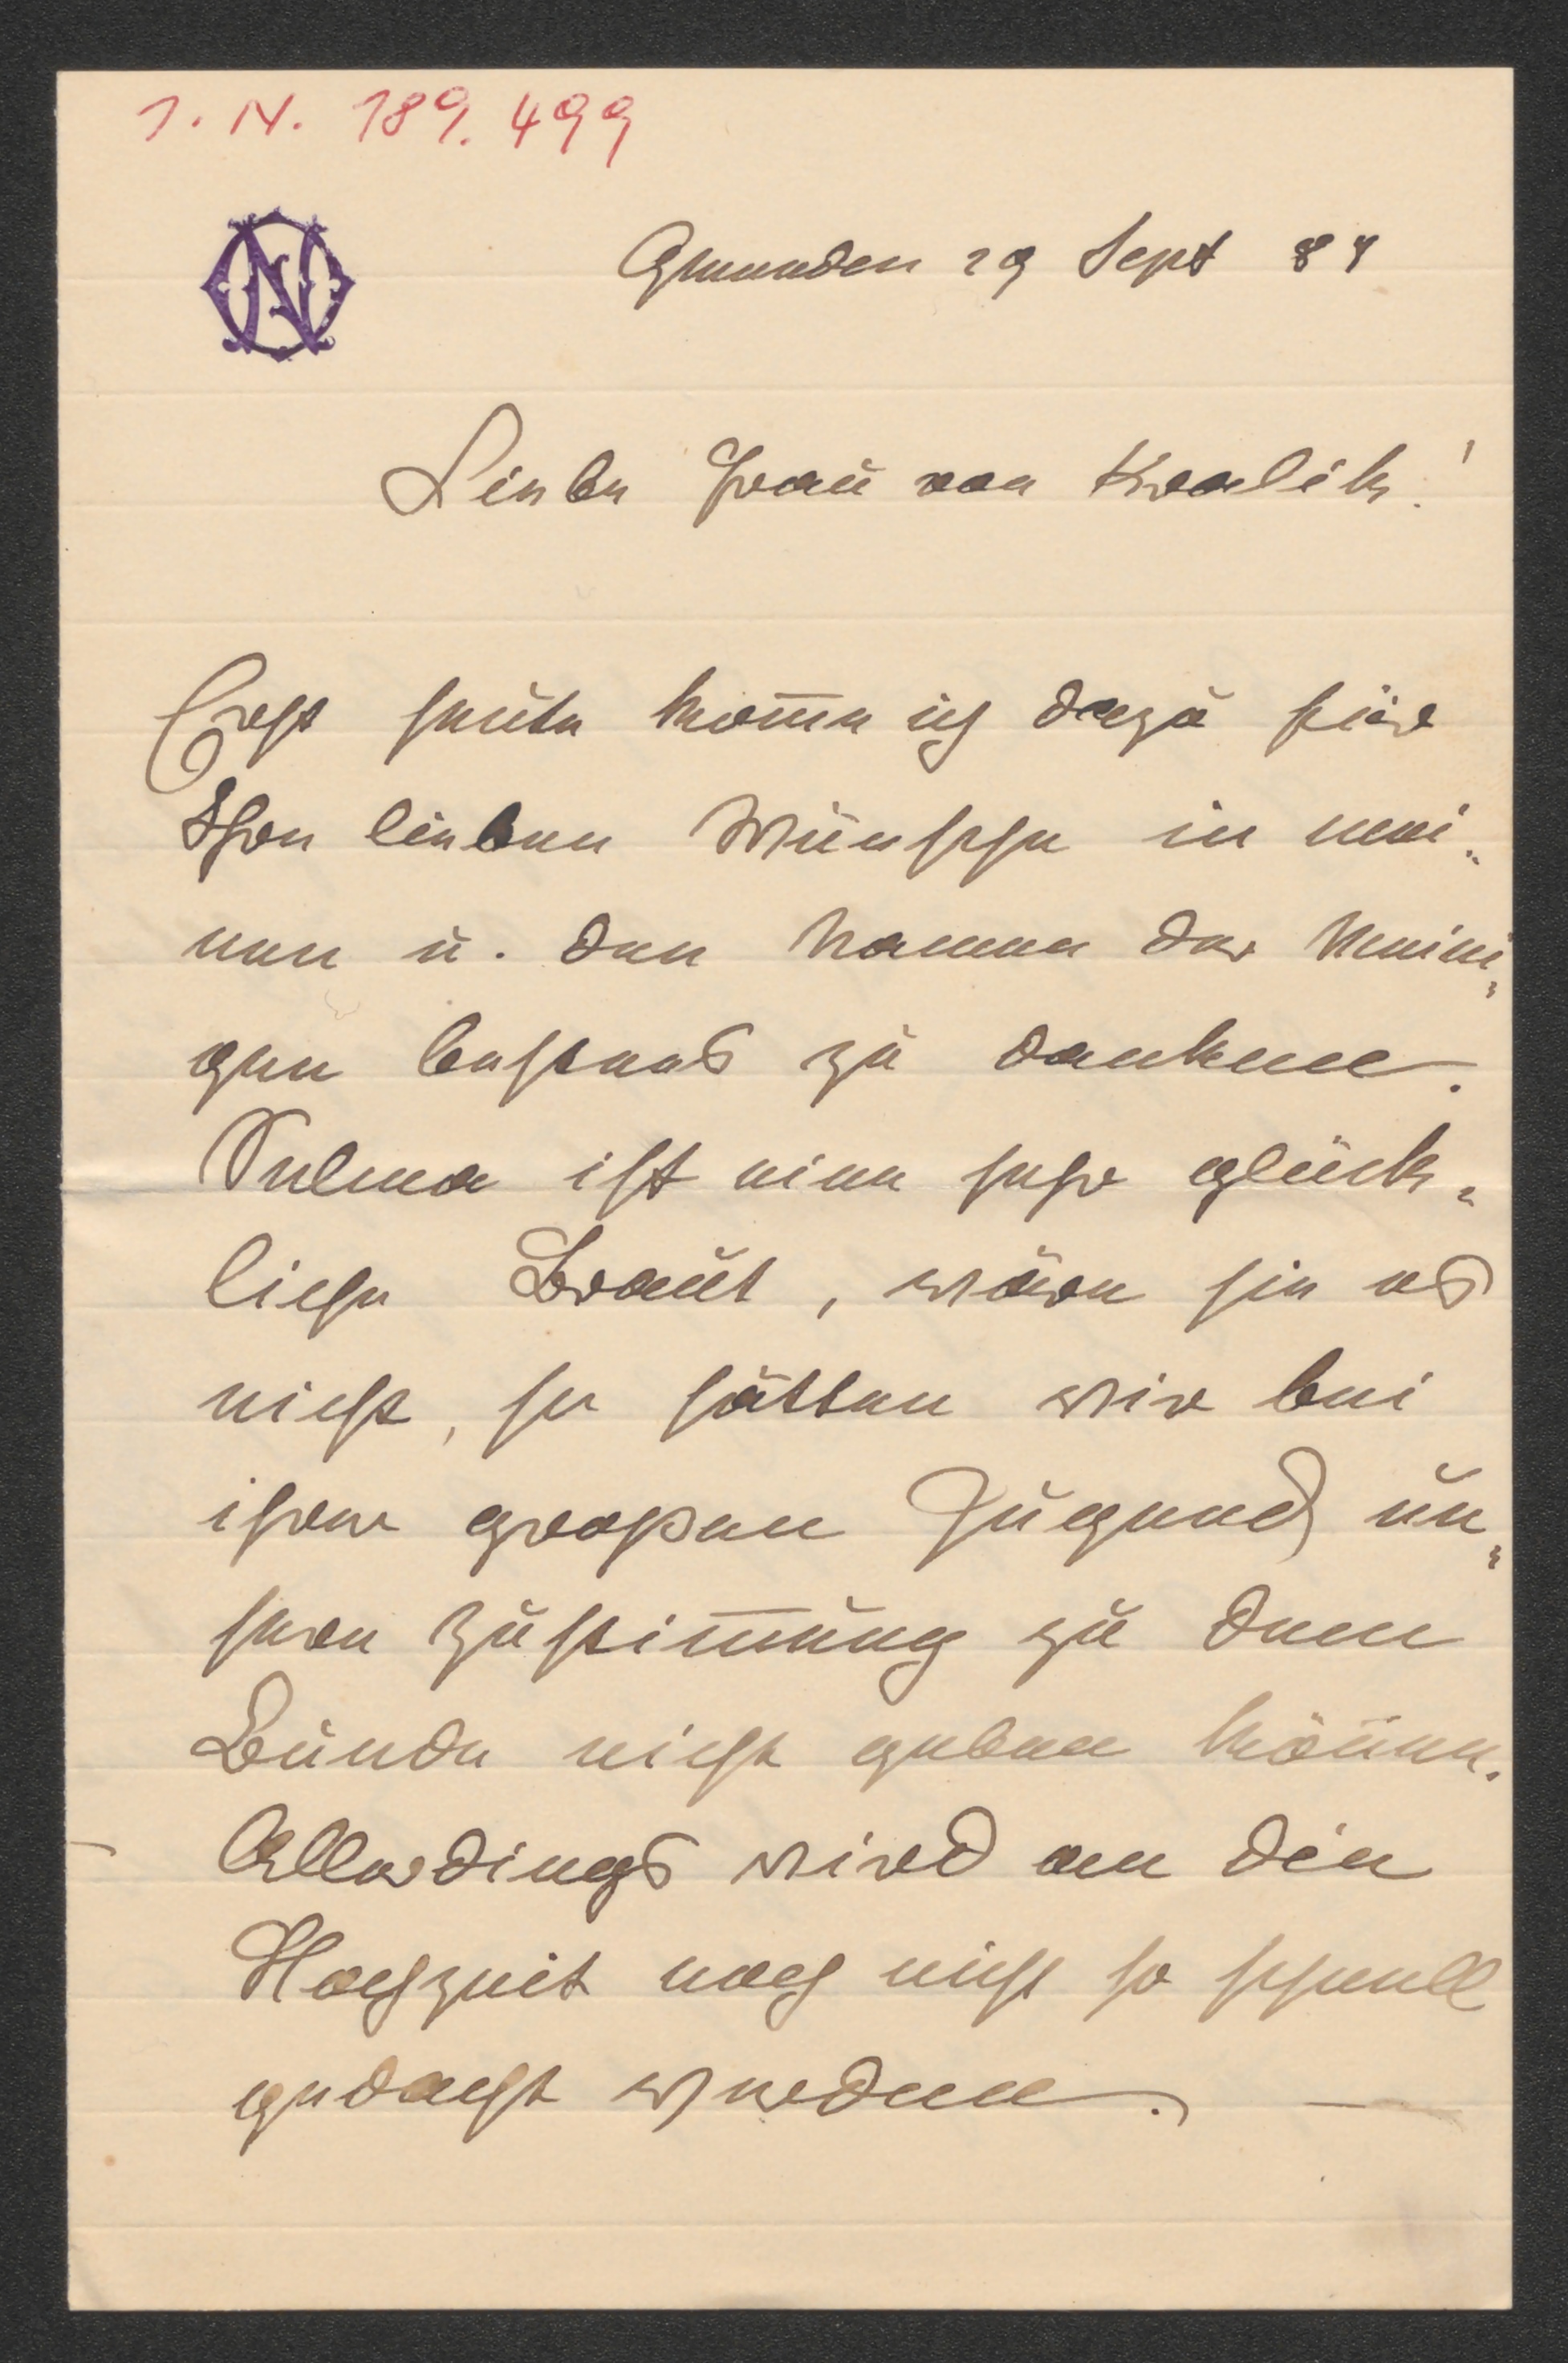 I. N. 189.499
Gmunden 29 Sept 84
Liebe Frau von Kralik!
Erst heute kom̅e ich dazu für
Ihre lieben Wünsche in mei-
nen u. den Namen der Meini-
gen bestens zu danken.
Selma ist eine sehr glück-
liche Braut, wäre sie es
nicht, so hätten wir bei
ihrer großen Jugend un-
sere Zustim̅ung zu dem
Bunde nicht geben kön̅en.
Allerdings wird an die
Hochzeit noch nicht so schnell
gedacht werden. —